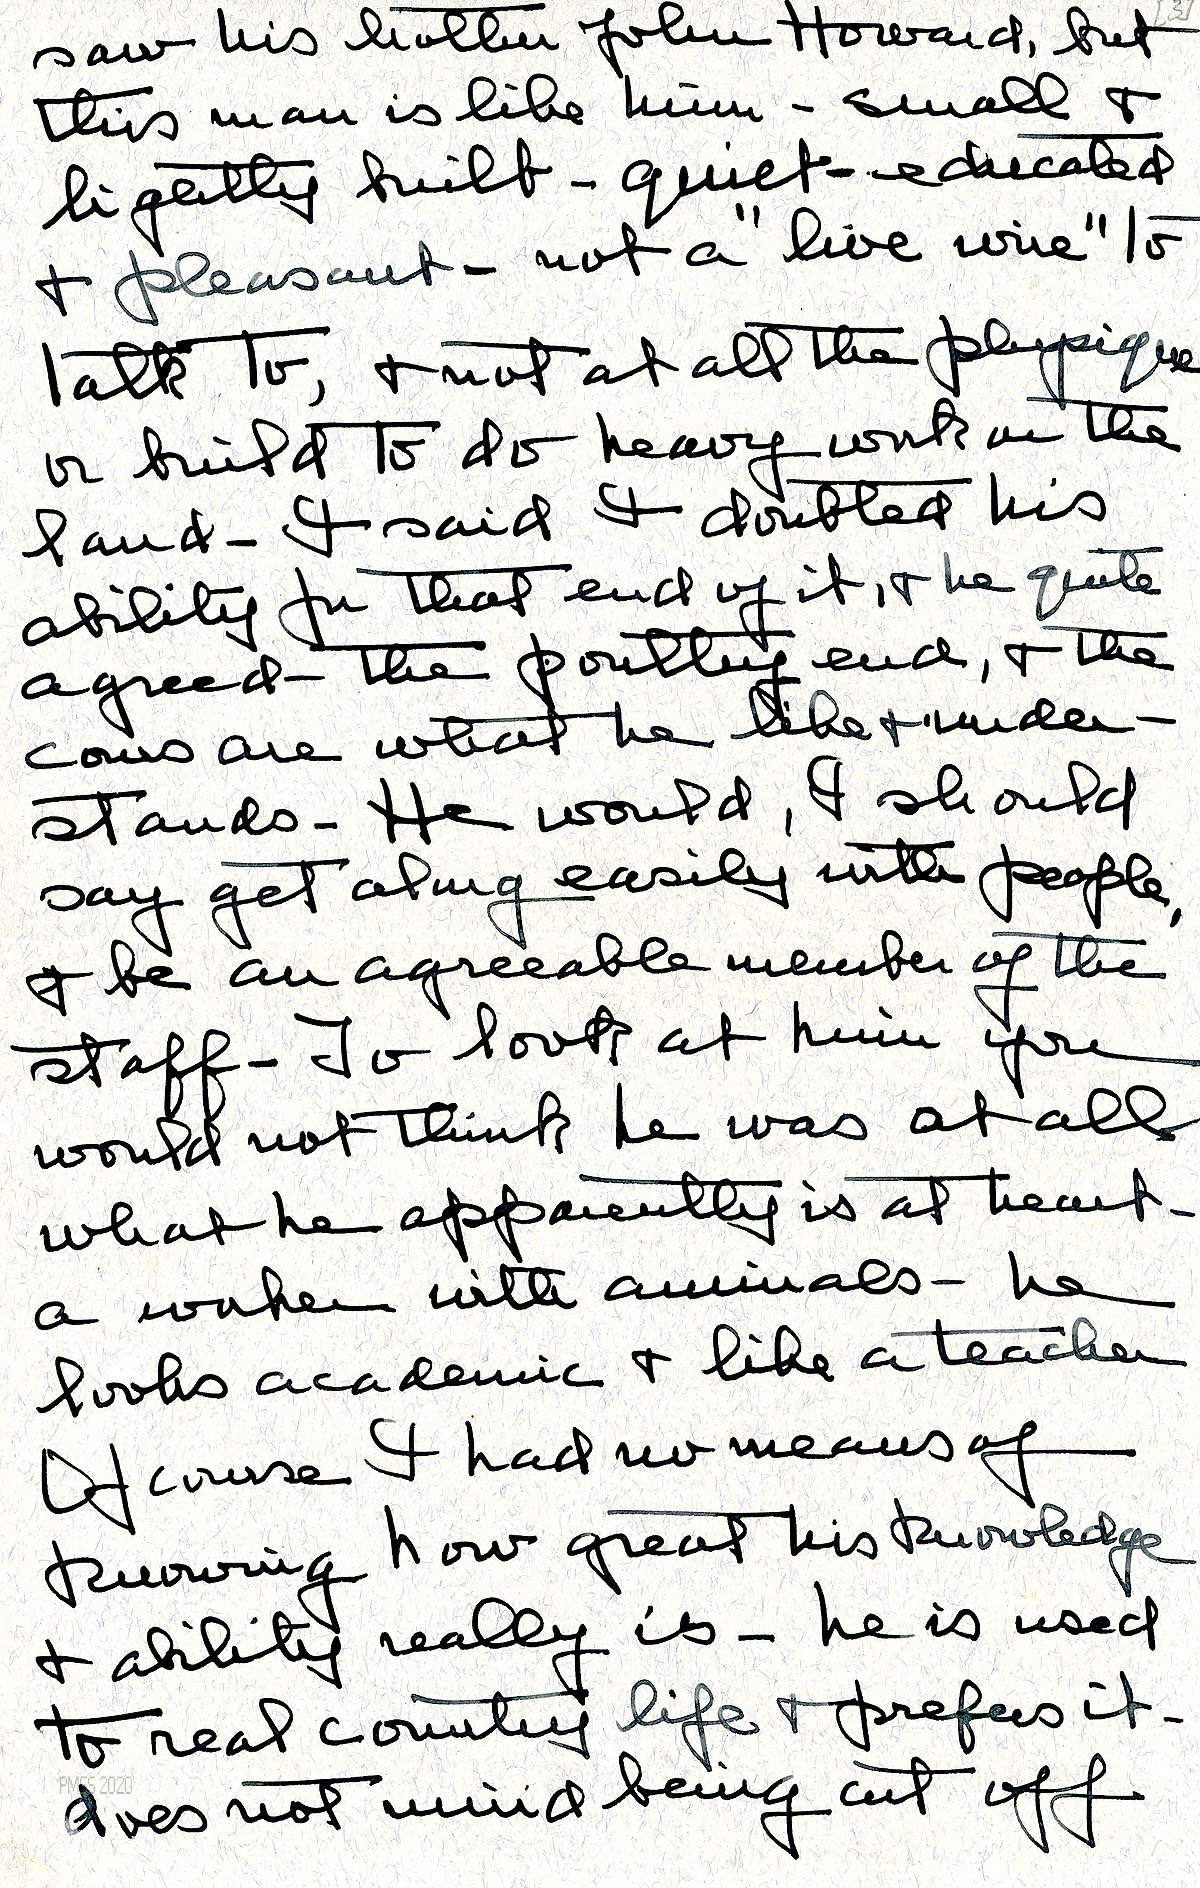 [3]
saw his brother John Howard, but
this man is like him - small &
lightly built - quiet - educated
& pleasant - not a "live wire" to
talk to, & not at all the physique
or build to do heavy work on the
land - I said I doubted his
ability for that end of it, & he quite
agreed - the poultry end, & the
cows are what he like & under-
stands - He would, I should
say get along easily with people,
& be an agreeable member of the
staff - To look at him you
would not think he was at all
what he apparently is at heart -
a worker with animals - he
looks academic & like a teacher
Of course I had no means of
knowing how great his knowledge
& ability really is - he is used
to real country life & prefers it -
PMSS 2020
does not mind being cut off